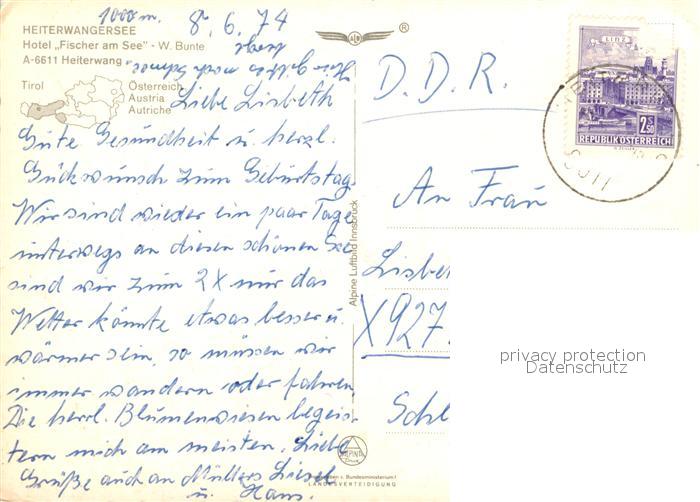 1000 m. 8.6.74
HEITERWANGERSEE
Hotel „Fischer am See" - W. Bunte
A-6611 Heiterwang
Hier gibt es noch Schnee
Tirol
Österreich
Austria
Autriche
Liebe Lisbeth
Gute Gesundheit u. herzl.
Glückwunsch zum Geburtstag.
Wir sind wieder ein paar Tage
unterwegs an diesen schönen See
sind wir zum 2x nur das
Wetter könnte etwas besser u.
wärmer sein, so müssen wir
immer wandern oder fahren.
Die herrl. Blumenwiesen begeis-
tern mich am meisten. Liebe
Grüße auch an Müllers Liesel
u. Hans.
Alpine Luftbild Innsbruck
ALPINE
n v. Bundesministerium f.
LANDESVERTEIDIGUNG
®
LINZ
2.50
REPUBLIK ÖSTERREICH
D.D.R.
An Frau
Lisbe
X927
Schl
privacy protection
Datenschutz